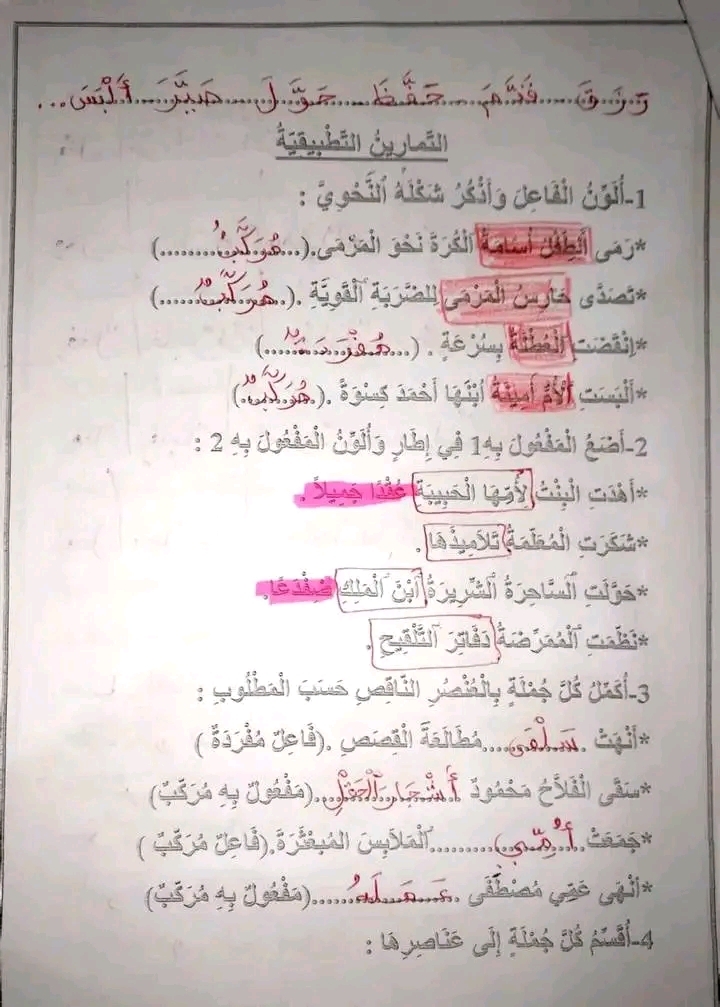 رَزَقَ.....قَدَّمَ....حَفَّظَ....حَوَّلَ....صَيَّرَ...أَلْبَسَ...
التَّمارينُ التَّطْبيقِيَّةُ
1-أُلَوِّنُ الْفَاعِلَ وَأَذْكُرُ شَكْلَهُ ٱلنَّحْوِيَّ :
*رَمَى ٱلطِّفْلُ أُسَامَةُ ٱلْكُرَةَ نَحْوَ الْمَرْمَى.(...مُرَكَّبٌ........)
*تَصَدَّى حَارِسُ الْمَرْمَى لِلضَّرَبَةِ ٱلْقَوِيَّةِ .(...مُرَكَّبٌ.......)
*اِنْقَضَتِ ٱلْعُطْلَةُ بِسُرْعَةٍ . (....مُفْرَدَةٌ..........)
*أَلْبَسَتِ ٱلْأُمُّ أَمِينَةُ ٱبْنَهَا أَحْمَدَ كِسْوَةً .(.مُرَكَّبٌ.)
2-أَضَعُ الْمَفْعُولَ بِهِ1 فِي إِطَارٍ وَأُلَوِّنُ الْمَفْعُولَ بِهِ 2 :
*أَهْدَتِ الْبِنْتُ لِأُمِّهَا الْحَبِيبَةِ عُقْدًا جَمِيلاً .
*شَكَرَتِ الْمُعَلِّمَةُ تَلَامِيذَهَا .
*حَوَّلَتِ ٱلسَّاحِرَةُ ٱلشِّرِّيرَةُ ٱبْنَ ٱلْمَلِكِ ضِفْدَعًا.
*نَظَّمَتِ ٱلْمُمَرِّضَةُ دَفَاتِرَ ٱلتَّلْقِيحِ .
3-أُكَمِّلُ كُلَّ جُمْلَةٍ بِالْعُنْصُرِ النَّاقِصِ حَسَبَ الْمَطْلُوبِ :
*أَنْهَتْ .سَلْمَى.....مُطَالَعَةَ الْقِصَصِ .(فَاعِلٌ مُفْرَدَةٌ )
*سَقَى الْفَلَّاحُ مَحْمُودٌ أَشْجَارَ الْحَقْلِ....(مَفْعُولٌ بِهِ مُرَكَّبٌ)
*جَمَعَتْ.أُمِّي.............ٱلْمَلَابِسَ الْمُبَعْثَرَةَ.(فَاعِلٌ مُرَكَّبٌ )
*أَنْهَى عَمِّي مُصْطَفَى .عَمَلَهُ.......(مَفْعُولٌ بِهِ مُرَكَّبٌ)
4-أُقَسِّمُ كُلَّ جُمْلَةٍ إِلَى عَنَاصِرِهَا :